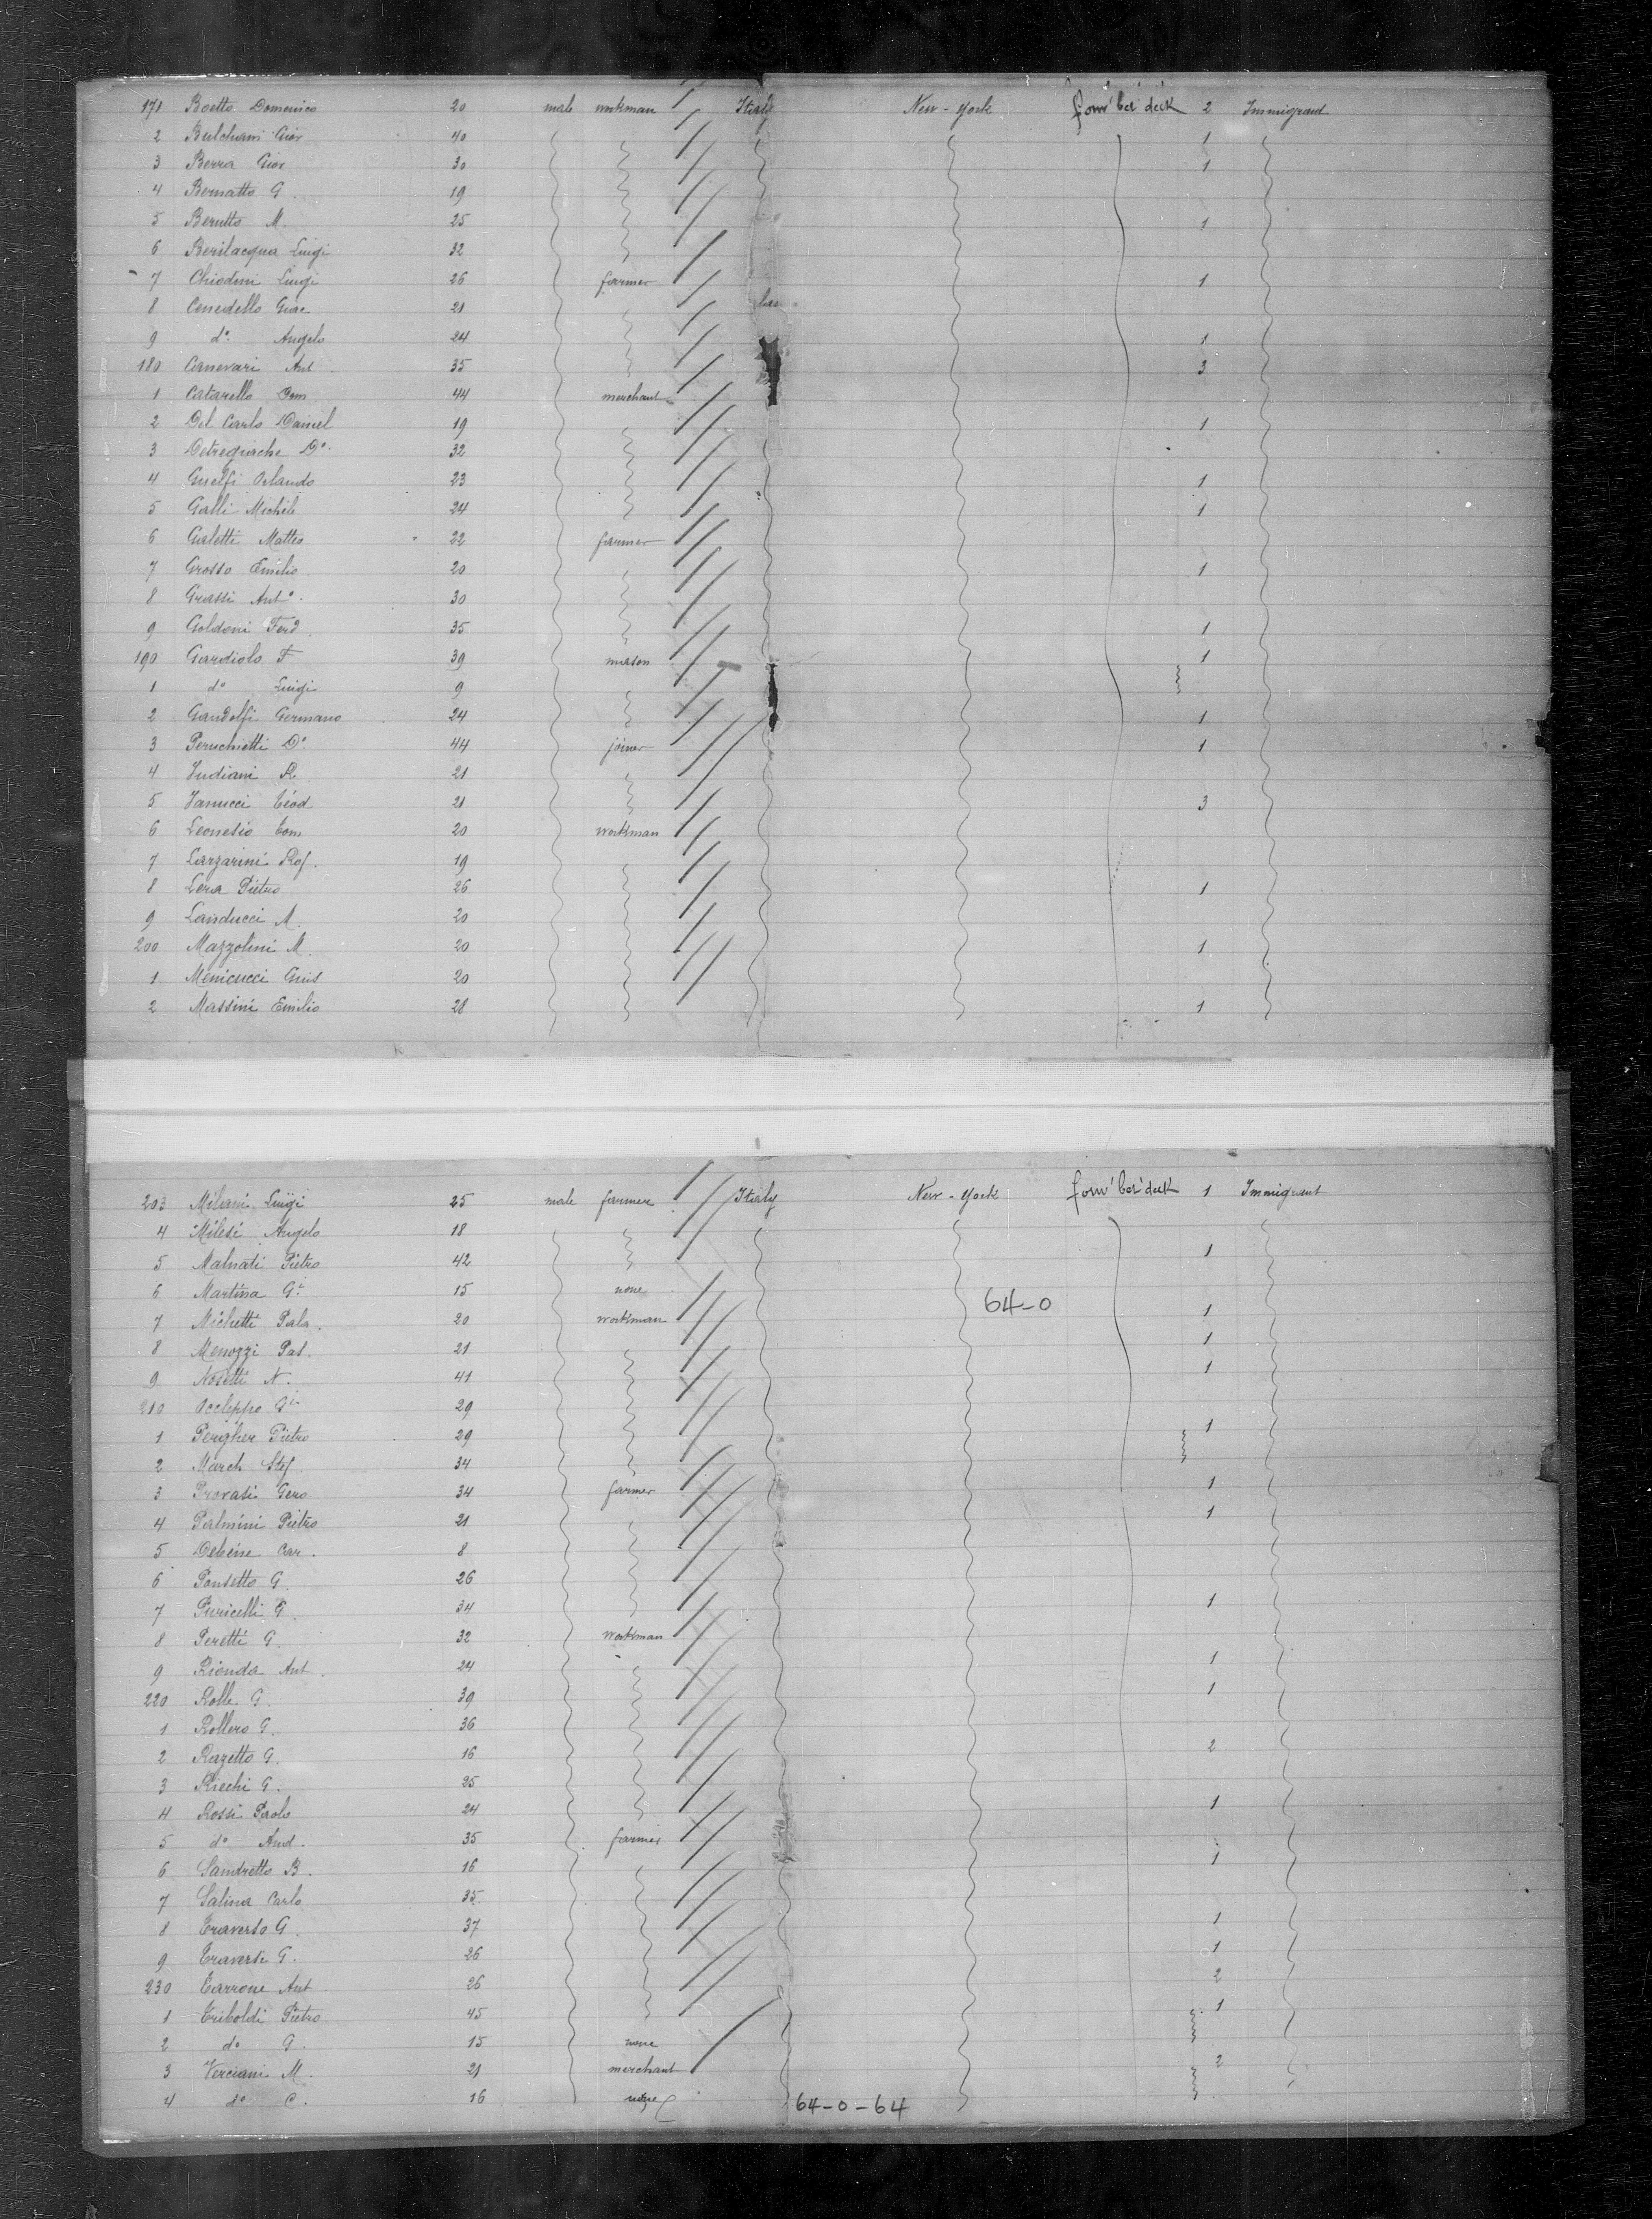 171 Boetto Domenico 20 male workman Italy New-York forw' bet' deck 2 Immigrant
2 Gior 40 1
3 Berra Gior 30 1
4 Bernatto G. 19
5 Berutto M. 25 1
6 Bevilacqua Luigi 32
7 Chiodini Luigi 26 farmer 1
8 Cenedello Giac 21
9 do Angelo 24 1
180 Canevari Ant. 35 3
1 Catarello Dom 44 merchant
2 Del Carlo Daniel 19 1
3 Do. 32
4 Guelfi Orlando 23 1
5 Galli Michele 24 1
6 Galetti Matteo 22 farmer
7 Grosso Emilio 20 1
8 Grassi Anto. 30
9 Goldoni Ferd. 35 1
190 Gardiolo F 39 mason 1
1 do Luigi 9
2 Gandolfi Germano 24 1
3 Peruchietti Do. 44 joiner 1
4 Judiani R. 21
5 Janucci Téod 21 3
6 Leonesio Tom 20 workman
7 Lazzarini Raf. 19
8 Lera Pietro 26 1
9 Landucci A. 20
200 Mazzolini M. 20 1
1 Menicucci Gius 20
2 Massini Emilio 28 1
203 Milani Luigi 25 male farmer Italy New-York forw' bet' deck 1 Immigrant
4 Milesi Angelo 18
5 Malnati Pietro 42 1
6 Martina Gi. 15 none
64-0
7 Michetti Pala. 20 workman 1
8 Menozzi Pas. 21 1
9 Nosetti N. 41 1
210 Occleppo Gi. 29
1 Pergher Pietro 29 1
2 March Stef. 34
3 Provasi Gero 34 farmer 1
4 Palmini Pietro 21 1
5 Car. 8
6 Ponsetto G. 26
7 Puricelli G. 34 1
8 Peretti G. 32 workman
9 Rionda Ant. 24 1
220 Rolle G. 39 1
1 Rollero G. 36
2 Razetto G. 16 2
3 Riechi G. 25
4 Rossi Paolo 24 1
5 do And. 35 farmer
6 Sandretto B. 16 1
7 Salina Carlo 35
8 Traverso G. 37 1
9 Traversi G. 26 1
230 Tarrone Ant. 26 2
1 Triboldi Pietro 45 1
2 do G. 15 none
3 Verciani M. 21 merchant 2
4 do C. 16 none
64-0-64